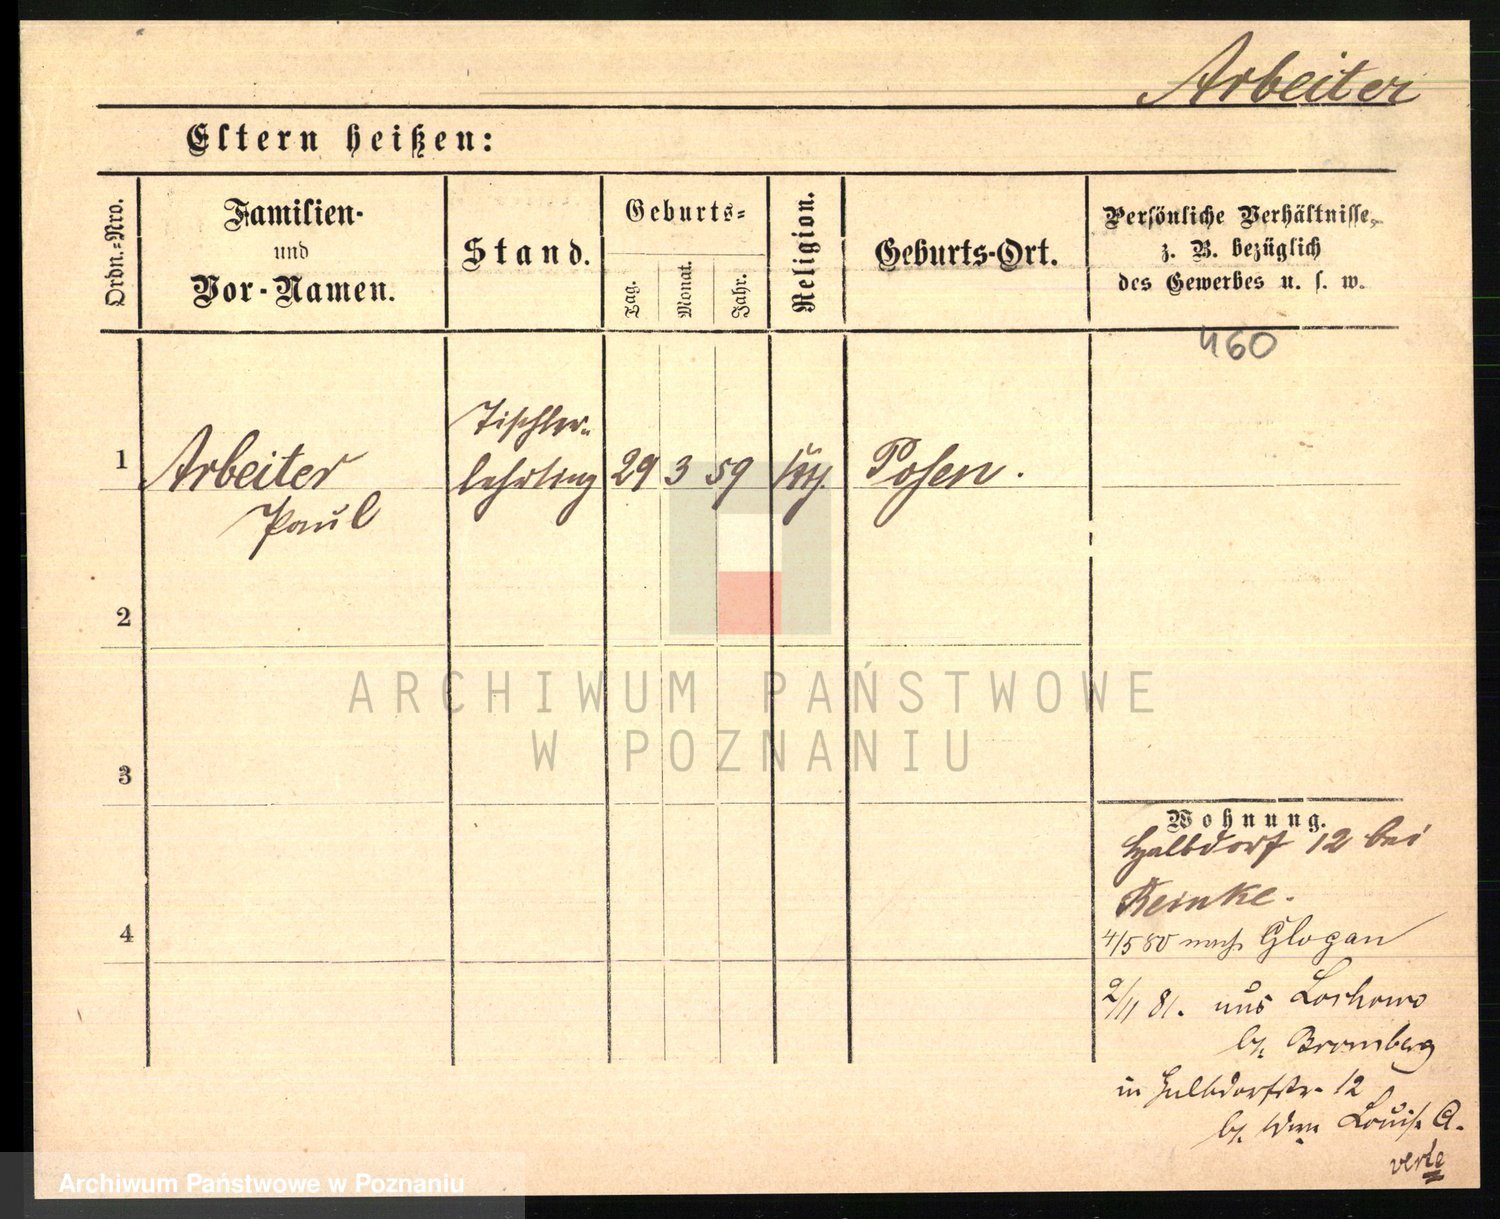 Arbeiter
Eltern heißen:
Ordn.-Nro.
Familien-
und
Vor-Namen.
Stand.
Geburts-
Tag.
Monat.
Jahr.
Religion.
Geburts-Ort.
Persönliche Verhältnisse,
z. B. bezüglich
des Gewerbes u. s. w.
460
1
Arbeiter
Paul
Tischler-
lehrling
29 3 59
Posen.
2
3
4
Wohnung.
Halbdorf 12 bei
Reinke.
4/5 80 nach Glogau
2/11 81. aus Lochowo
b. Bromberg
in Halbdorfstr. 12
b. Wwe Louise A.
verte
ARCHIWUM PAŃSTWOWE
W POZNANIU
Archiwum Państwowe w Poznaniu